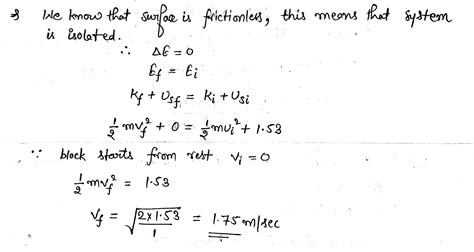 We know that surface is frictionless, this means that system
is isolated.
∴ ΔE = 0
E_f = E_i
K_f + U_sf = K_i + U_si
1/2 mv_f² + 0 = 1/2 mv_i² + 1.53
∵ block starts from rest v_i = 0
1/2 mv_f² = 1.53
v_f = √(2×1.53/1) = 1.75 m/sec